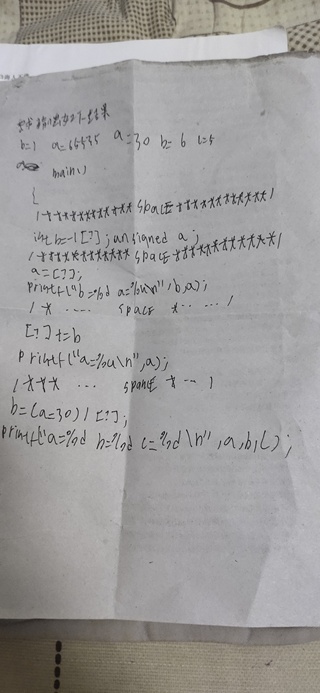 b=1 a=65535 a=30 b=6 c=5
main()
{
/*********** space ***********/
int b=-1[?]; unsigned a;
/*********** space ***********/
a=[?];
printf("b=%d a=%u\n",b,a);
/ * .... space * .. ... /
[?] += b
printf("a=%u\n",a);
/*** ... space * ... /
b=(a=30)/[?];
printf("a=%d b=%d c=%d\n",a,b,c);